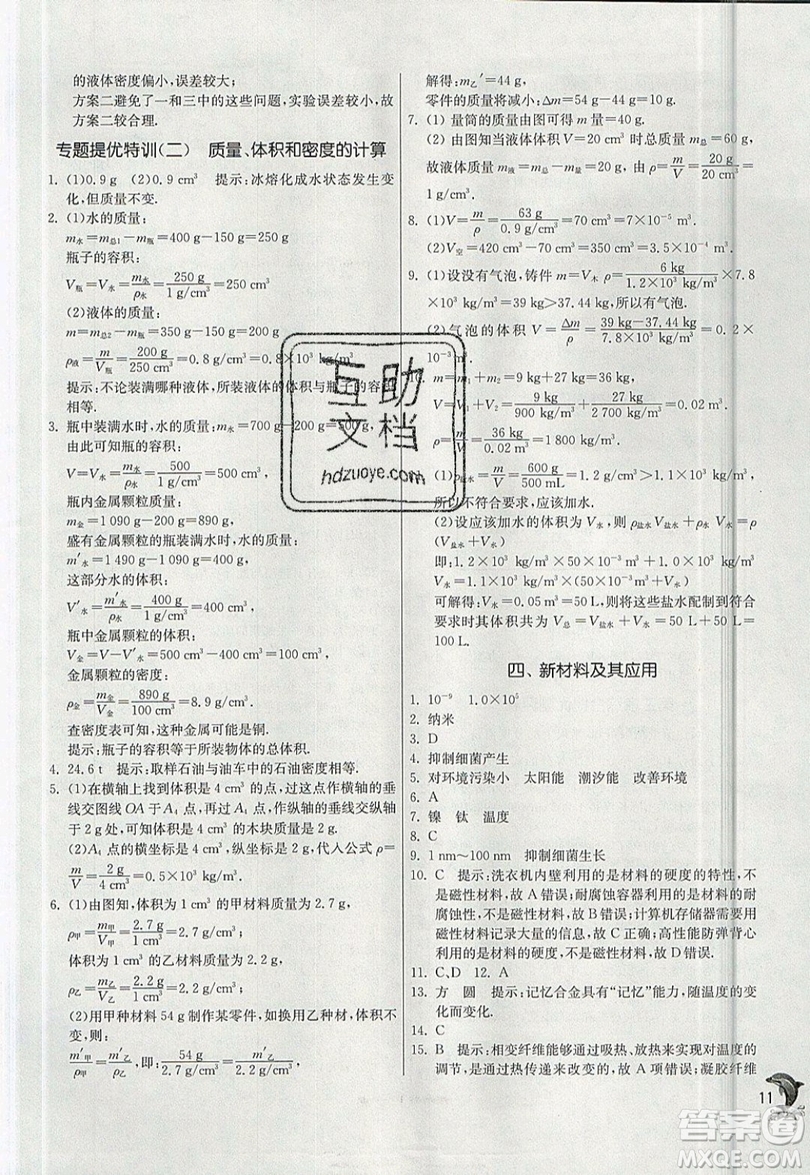 的液体密度偏小，误差较大；
方案二避免了一和三中的这些问题，实验误差较小，故
方案二较合理.
专题提优特训(二) 质量、体积和密度的计算
1. (1)0.9 g (2)0.9 cm³ 提示：冰熔化成水状态发生变
化，但质量不变.
2. (1)水的质量：
m水＝m总1－m瓶＝400 g－150 g＝250 g
瓶子的容积：
V瓶＝V水＝m水/ρ水＝250 g/1 g/cm³＝250 cm³
(2)液体的质量：
m＝m总2－m瓶＝350 g－150 g＝200 g
ρ液＝m/V瓶＝200 g/250 cm³＝0.8 g/cm³＝0.8×10³ kg/m³
提示：不论装满哪种液体，所装液体的体积与瓶子的容积
相等.
3. 瓶中装满水时，水的质量：m水＝700 g－200 g＝500 g
由此可知瓶的容积：
V＝V水＝m水/ρ水＝500/1 g/cm³＝500 cm³
瓶内金属颗粒质量：
m金＝1 090 g－200 g＝890 g，
盛有金属颗粒的瓶装满水时，水的质量：
m′水＝1 490 g－1 090 g＝400 g
这部分水的体积：
V′水＝m′水/ρ水＝400 g/1 g/cm³＝400 cm³
瓶中金属颗粒的体积：
V金＝V－V′水＝500 cm³－400 cm³＝100 cm³
金属颗粒的密度：
ρ金＝m金/V金＝890 g/100 cm³＝8.9 g/cm³.
查密度表可知，这种金属可能是铜.
提示：瓶子的容积等于所装物体的总体积.
4. 24.6 t 提示：取样石油与油车中的石油密度相等.
5. (1)在横轴上找到体积是 4 cm³ 的点，过这点作横轴的垂
线交图线 OA 于 A₄ 点，再过 A₄ 点，作纵轴的垂线交纵轴
于 2 g 处，可知体积是 4 cm³ 的木块质量是 2 g.
(2)A₄ 点的横坐标是 4 cm³，纵坐标是 2 g，代人公式 ρ＝
m/V＝2 g/4 cm³＝0.5×10³ kg/m³.
6. (1)由图知，体积为 1 cm³ 的甲材料质量为 2.7 g，
ρ甲＝m甲/V甲＝2.7 g/1 cm³＝2.7 g/cm³
体积为 1 cm³ 的乙材料质量为 2.2 g，
ρ乙＝m乙/V乙＝2.2 g/1 cm³＝2.2 g/cm³
(2)用甲种材料 54 g 制作某零件，如换用乙种材，体积不
变，则：
m′甲/ρ甲＝m′乙/ρ乙，即：54 g/2.7 g/cm³＝m′乙/2.2 g/cm³
解得：m乙′＝44 g，
零件的质量将减小：Δm＝54 g－44 g＝10 g.
7. (1) 量筒的质量由图可得 m＝40 g
(2) 由图知当液体体积 V＝20 cm³ 时总质量 m总＝60 g，
故液体质量 m液＝20 g，由 ρ＝m/V 可得 ρ＝m/V＝20 g/20 cm³＝
1 g/cm³.
8. (1)V＝m/ρ＝63 g/0.9 g/cm³＝70 cm³＝7×10⁻⁵ m³.
(2)V空＝420 cm³－70 cm³＝350 cm³＝3.5×10⁻⁴ m³.
9. (1)设没有气泡，铸件 m＝V木 ρ＝6 kg/1.2×10³ kg/m³×7.8
×10³ kg/m³＝39 kg＞37.44 kg，所以有气泡.
(2)气泡的体积 V＝Δm/ρ＝39 kg－37.44 kg/7.8×10³ kg/m³＝0.2×
10⁻³ m³.
10. m＝m₁＋m₂＝9 kg＋27 kg＝36 kg
V＝V₁＋V₂＝9 kg/900 kg/m³＋27 kg/2 700 kg/m³＝0.02 m³
ρ＝m/V＝36 kg/0.02 m³＝1 800 kg/m³.
(1)ρ＝m/V＝600 g/500 mL＝1.2 g/cm³＞1.1×10³ kg/m³，
所以不符合要求，应该加水.
(2)设应该加水的体积为 V水，则 ρ盐水V盐水＋ρ水V水＝ρ
(V盐水＋V水)
即：1.2×10³ kg/m³×50×10⁻³ m³＋1.0×10³ kg/m³
×V水＝1.1×10³ kg/m³×(50×10⁻³ m³＋V水)
可解得：V水＝0.05 m³＝50 L，则将这些盐水配制到符合
要求时其体积共为 V总＝V盐水＋V水＝50 L＋50 L＝
100 L.
四、新材料及其应用
1. 10⁻⁹ 1.0×10⁵
2. 纳米
3. D
4. 抑制细菌产生
5. 对环境污染小 太阳能 潮汐能 改善环境
6. A
7. 镍 钛 温度
8. C
9. 1 nm～100 nm 抑制细菌生长
10. C 提示：洗衣机内壁利用的是材料的硬度的特性，不
是磁性材料，故 A 错误；耐腐蚀容器利用的是材料的耐
腐蚀性，不是磁性材料，故 B 错误；计算机存储器需要用
磁性材料记录大量的信息，故 C 正确；高性能防弹背心利
用的是材料的硬度，不是磁性材料，故 D 错误.
11. C、D 12. A
13. 方 圆 提示：记忆合金具有“记忆”能力，随温度的变
化而变化.
14. C
15. B 提示：相变纤维能够通过吸热、放热来实现对温度的
的调节，是通过热传递来实现的；凝胶纤维
11
互助
文档
hdzuoye.com
答案圈
MXQE.COM